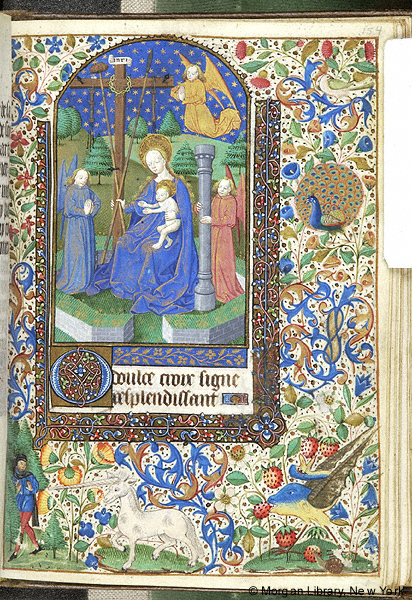 INRI
Doulce croix signe
resplendissant
© Morgan Library, New York